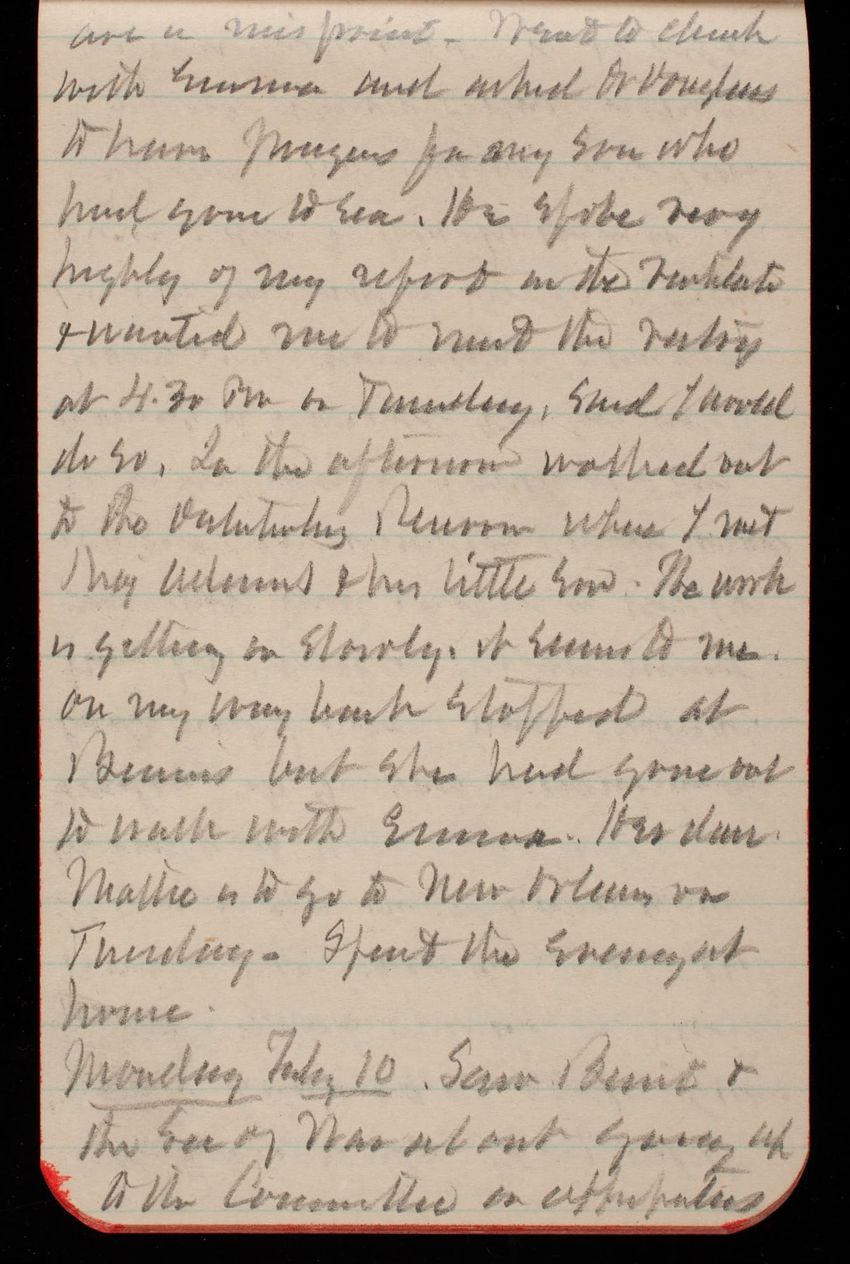 are a misprint - Went to church
with Emma and asked Dr Douglass
to have prayers for my son who
had gone to sea. He spoke very
highly of my report on the
& wanted me to meet the vestry
at 4.30 PM on Tuesday. Said I would
do so. In the afternoon walked out
to the Reservoir where I met
& his little son. The work
is getting on slowly. it seems to me.
on my way back stopped at
Bessies but she had gone out
to walk with Emma. Her dau
Mattie is to go to New Orleans on
Tuesday - Spent the evening at
home.
Monday Feby 10. Saw Benet &
the Sec of War about going up
to the Committee on appropriations